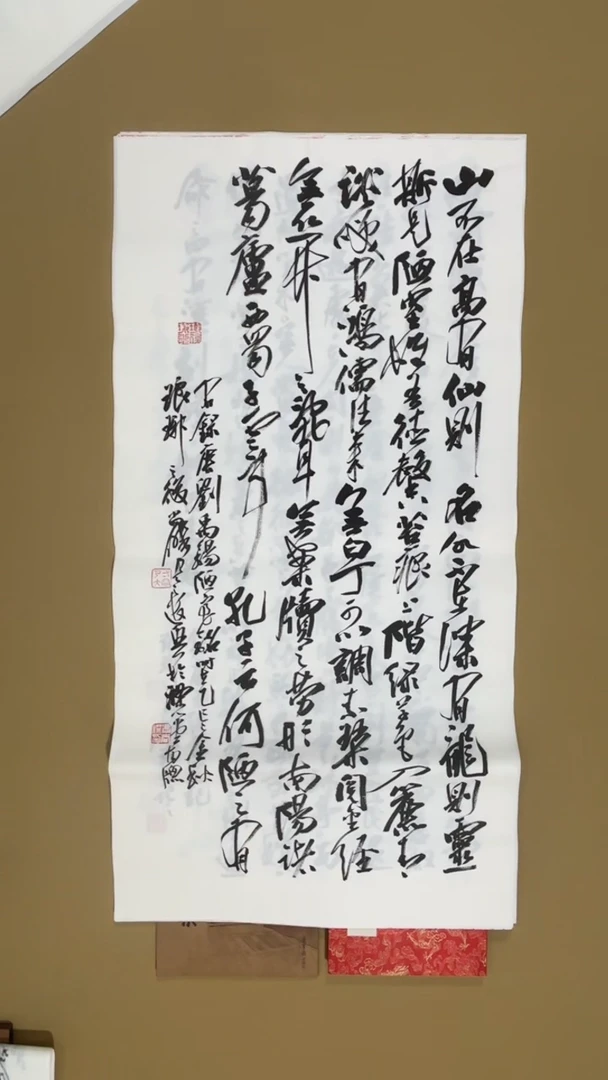 山不在高有仙則名水不在深有龍則靈
斯是陋室惟吾德馨苔痕上階綠草色入簾青
談笑有鴻儒往來無白丁可以調素琴閱金經
無絲竹之亂耳無案牘之勞形南陽諸
葛廬西蜀子雲亭孔子云何陋之有
錄唐劉禹錫陋室銘時乙巳金秋
琅琊